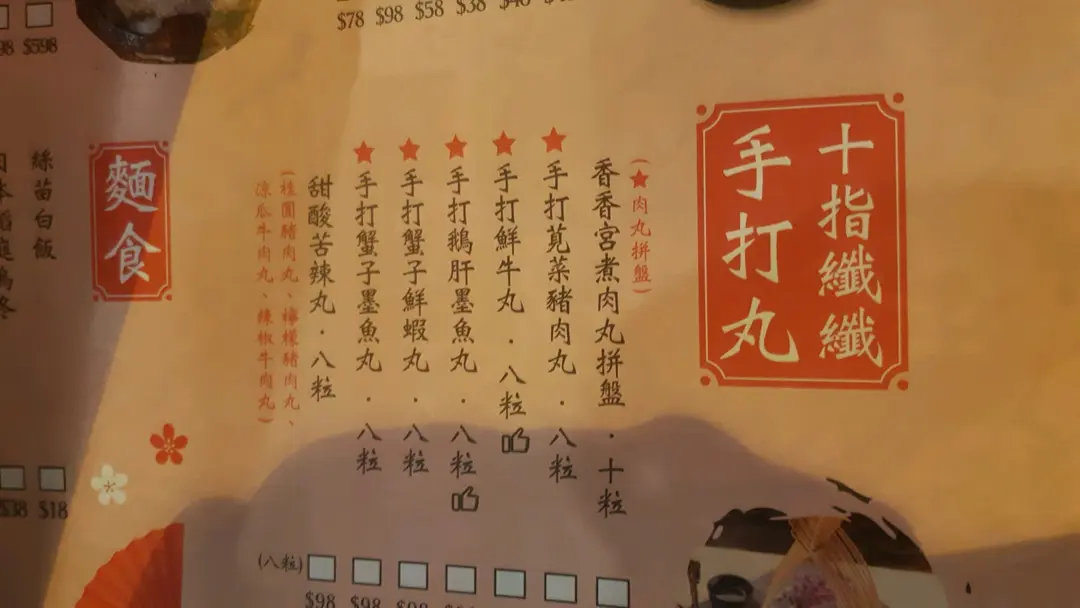 $78 $98 $58 $38
$598
十指纖纖
手打丸
(★肉丸拼盤)
香香宮煮肉丸拼盤．十粒
★手打莧菜豬肉丸．八粒
★手打鮮牛丸．八粒
★手打鵝肝墨魚丸．八粒
★手打蟹子鮮蝦丸．八粒
★手打蟹子墨魚丸．八粒
甜酸苦辣丸．八粒
(桂圓豬肉丸、檸檬豬肉丸、
涼瓜牛肉丸、辣椒牛肉丸)
(八粒)
$98 $98
麵食
絲苗白飯
$38 $18